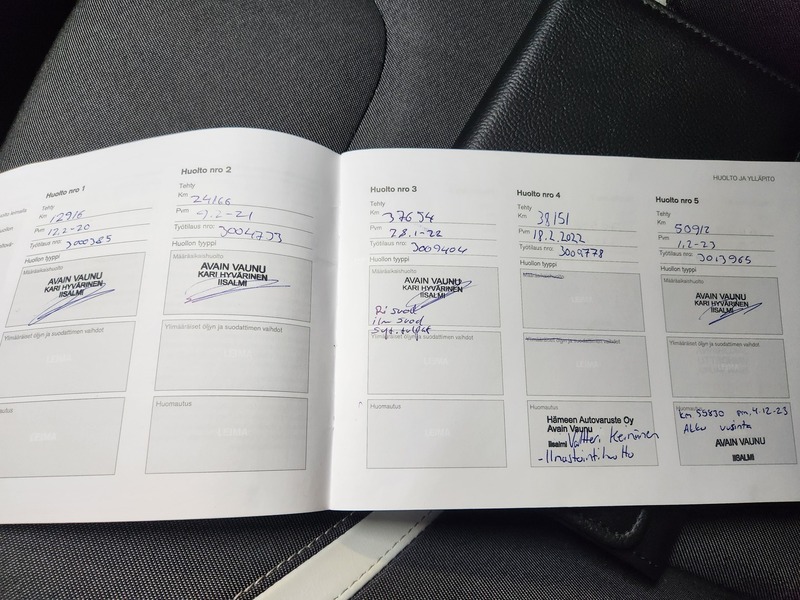 Huolto nro 1
Tehty
Km 12916
Pvm 12.2-20
Työtilaus nro: 3000385
Huollon tyyppi
Määräaikaishuolto
AVAIN VAUNU
KARI HYVÄRINEN
IISALMI
Ylimääräiset öljyn ja suodattimen vaihdot
LEIMA
Huomautus
LEIMA
Huolto nro 2
Tehty
Km 24166
Pvm 9.2-21
Työtilaus nro: 3004733
Huollon tyyppi
Määräaikaishuolto
AVAIN VAUNU
KARI HYVÄRINEN
IISALMI
Ylimääräiset öljyn ja suodattimen vaihdot
LEIMA
Huomautus
LEIMA
HUOLTO JA YLLÄPITO
Huolto nro 3
Tehty
Km 37694
Pvm 28.1-22
Työtilaus nro: 3009404
Huollon tyyppi
Määräaikaishuolto
AVAIN VAUNU
KARI HYVÄRINEN
IISALMI
Ri suod
ilm suod
Syt.tulpat
Ylimääräiset öljyn ja suodattimen vaihdot
LEIMA
Huomautus
LEIMA
Huolto nro 4
Tehty
Km 38151
Pvm 18.2.2022
Työtilaus nro: 3009778
Huollon tyyppi
Määräaikaishuolto
LEIMA
Ylimääräiset öljyn ja suodattimen vaihdot
LEIMA
Hämeen Autovaruste Oy
Avain Vaunu
Iisalmi Valtteri Keinänen
- Ilmastointihuolto
Huolto nro 5
Tehty
Km 50912
Pvm 1.2-23
Työtilaus nro: 3013965
Huollon tyyppi
Määräaikaishuolto
AVAIN VAUNU
KARI HYVÄRINEN
IISALMI
Ylimääräiset öljyn ja suodattimen vaihdot
Huomautus
km 55830 pm. 4.12-23
Akku uusinta
AVAIN VAUNU
IISALMI